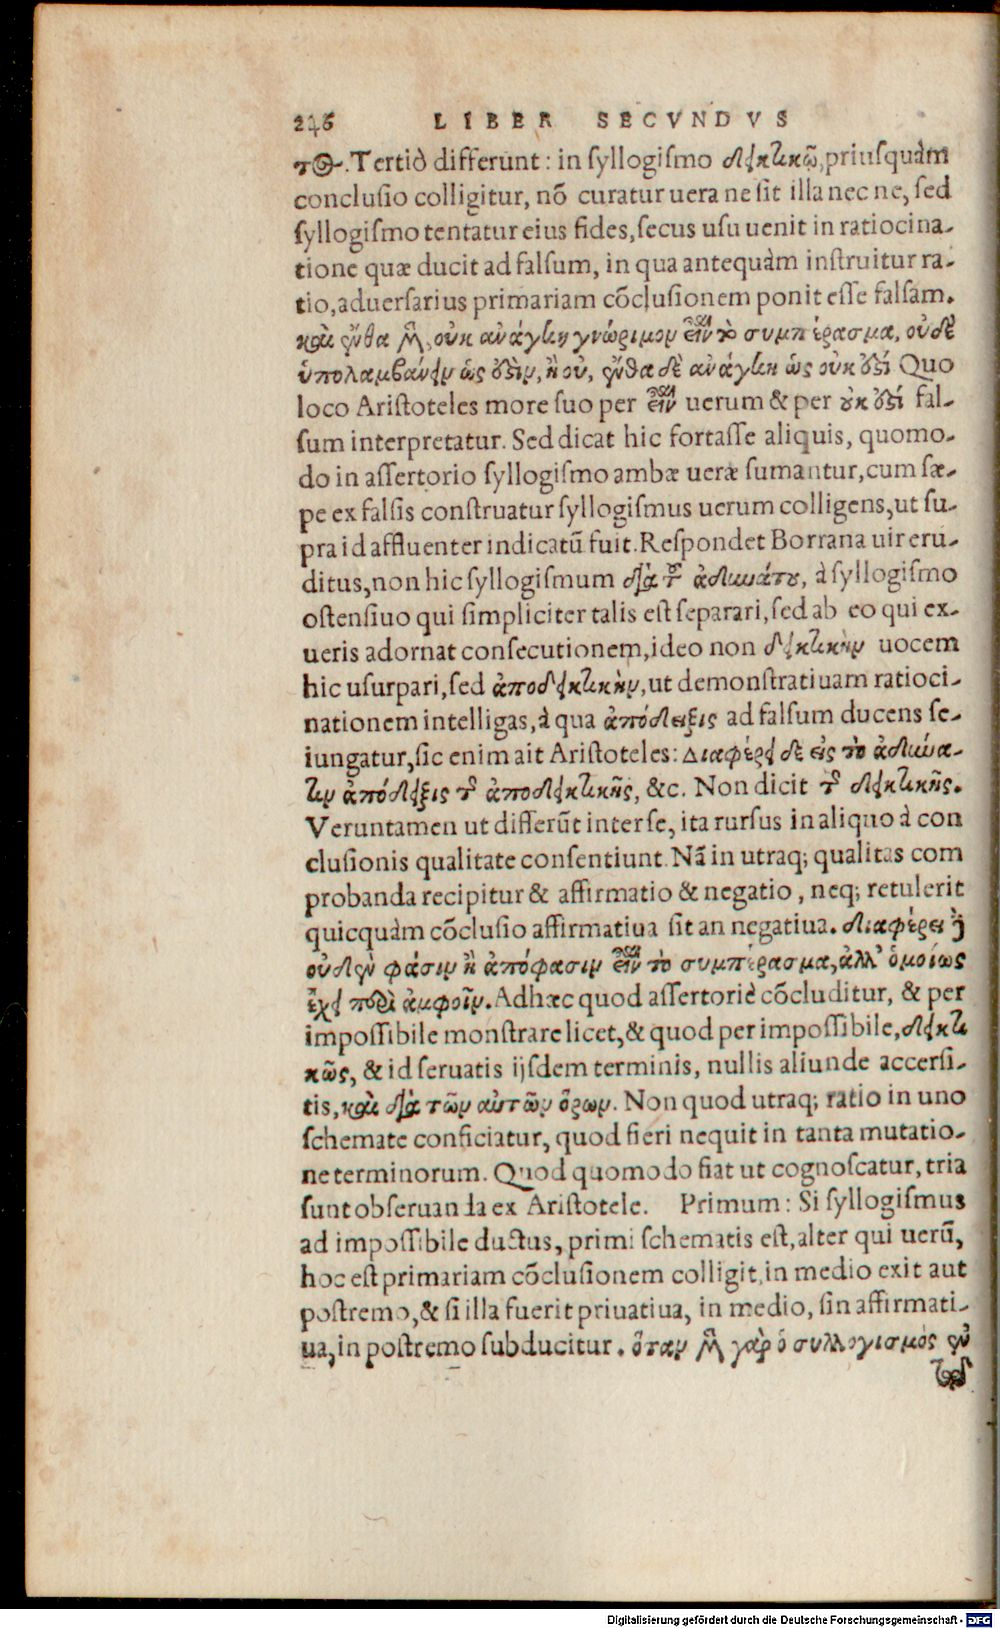 246 LIBER SECVNDVS
τος. Tertiò differunt: in syllogismo δεικτικῷ, priusquàm
conclusio colligitur, nō curatur uera ne sit illa nec ne, sed
syllogismo tentatur eius fides, secus usu uenit in ratiocina-
tione quæ ducit ad falsum, in qua antequàm instruitur ra-
tio, aduersarius primariam cōclusionem ponit esse falsam.
καὶ ἔνθα μὲν, οὐκ ἀνάγκη γνώριμον εἶναι τὸ συμπέρασμα, οὐδὲ
ὑπολαμβάνειν ὡς ἔστιν, ἢ οὐ, ἔνθα δὲ ἀνάγκη ὡς οὐκ ἔστι Quo
loco Aristoteles more suo per εἶναι uerum & per οὐκ ἔστι fal-
sum interpretatur. Sed dicat hic fortasse aliquis, quomo-
do in assertorio syllogismo ambæ ueræ sumantur, cum sæ-
pe ex falsis construatur syllogismus uerum colligens, ut su-
pra id affluenter indicatū fuit. Respondet Borrana uir eru-
ditus, non hic syllogismum διὰ τοῦ ἀδυνάτου, à syllogismo
ostensiuo qui simpliciter talis est separari, sed ab eo qui ex-
ueris adornat consecutionem, ideo non δεικτικὴν uocem
hic usurpari, sed ἀποδεικτικὴν, ut demonstratiuam ratioci-
nationem intelligas, à qua ἀπόδειξις ad falsum ducens se-
iungatur, sic enim ait Aristoteles: Διαφέρει δὲ εἰς τὸ ἀδύνα-
τον ἀπόδειξις τῆς ἀποδεικτικῆς, &c. Non dicit τῆς δεικτικῆς.
Veruntamen ut differūt inter se, ita rursus in aliquo à con
clusionis qualitate consentiunt. Nā in utraq; qualitas com
probanda recipitur & affirmatio & negatio, neq; retulerit
quicquàm cōclusio affirmatiua sit an negatiua. διαφέρει δὲ
οὐδὲν φάσιν ἢ ἀπόφασιν εἶναι τὸ συμπέρασμα, ἀλλ' ὁμοίως
ἔχει περὶ ἀμφοῖν. Adhæc quod assertoriè cōcluditur, & per
impossibile monstrare licet, & quod per impossibile, δεικτι
κῶς, & id seruatis ijsdem terminis, nullis aliunde accersi-
tis, καὶ διὰ τῶν αὐτῶν ὅρων. Non quod utraq; ratio in uno
schemate conficiatur, quod fieri nequit in tanta mutatio-
ne terminorum. Quod quomodo fiat ut cognoscatur, tria
sunt obseruanda ex Aristotele. Primum: Si syllogismus
ad impossibile ductus, primi schematis est, alter qui uerū,
hoc est primariam cōclusionem colligit, in medio exit aut
postremo, & si illa fuerit priuatiua, in medio, sin affirmati-
ua, in postremo subducitur. ὅταν μὲν γὰρ ὁ συλλογισμὸς ἐν
Digitalisierung gefördert durch die Deutsche Forschungsgemeinschaft - DFG